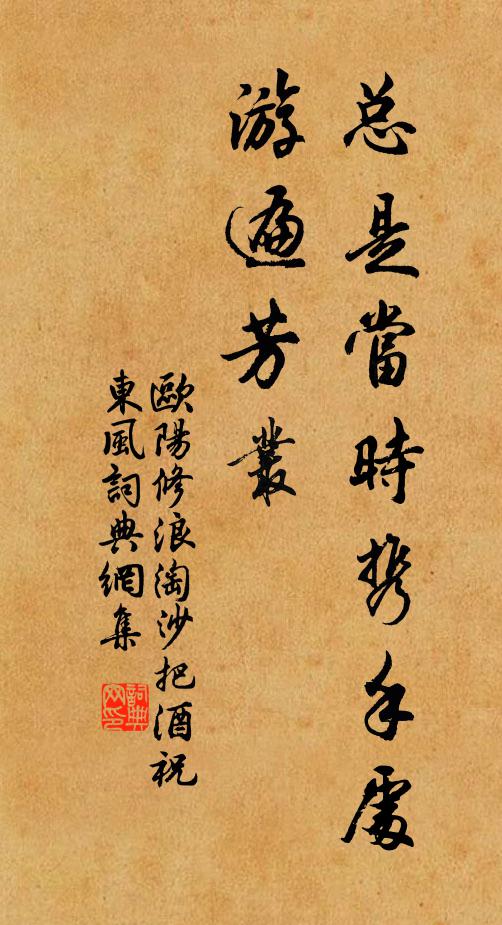 总是當時携手處
游遍芳叢
歐陽修浪淘沙把酒祝
東風詞典網集
詞典网印